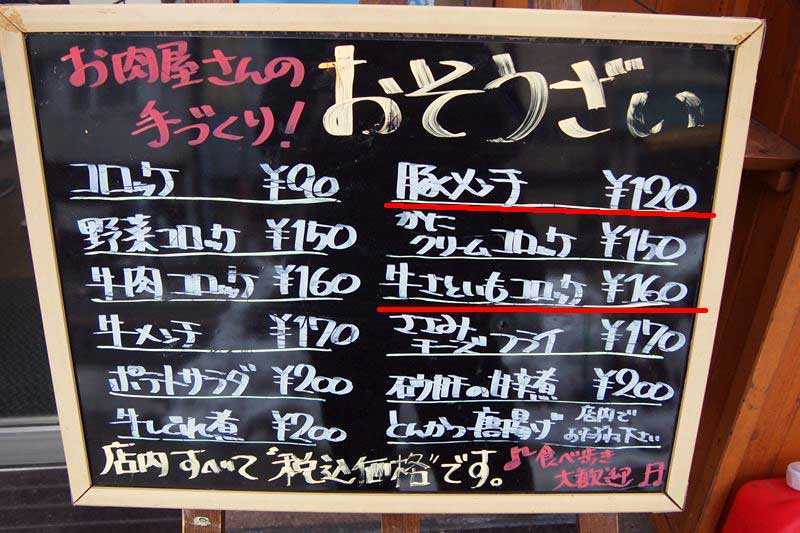 お肉屋さんの
手づくり!
おそうざい
コロッケ ¥90
野菜コロッケ ¥150
牛肉コロッケ ¥160
牛メンチ ¥170
ポテトサラダ ¥200
牛しぐれ煮 ¥200
豚メンチ ¥120
かに
クリームコロッケ ¥150
牛さといもコロッケ ¥160
ささみ
チーズフライ ¥170
砂肝の甘辛煮 ¥200
とんかつ 唐揚げ 店内で
おたずね下さい
店内すべて“税込価格”です。
♪食べ歩き
大歓迎